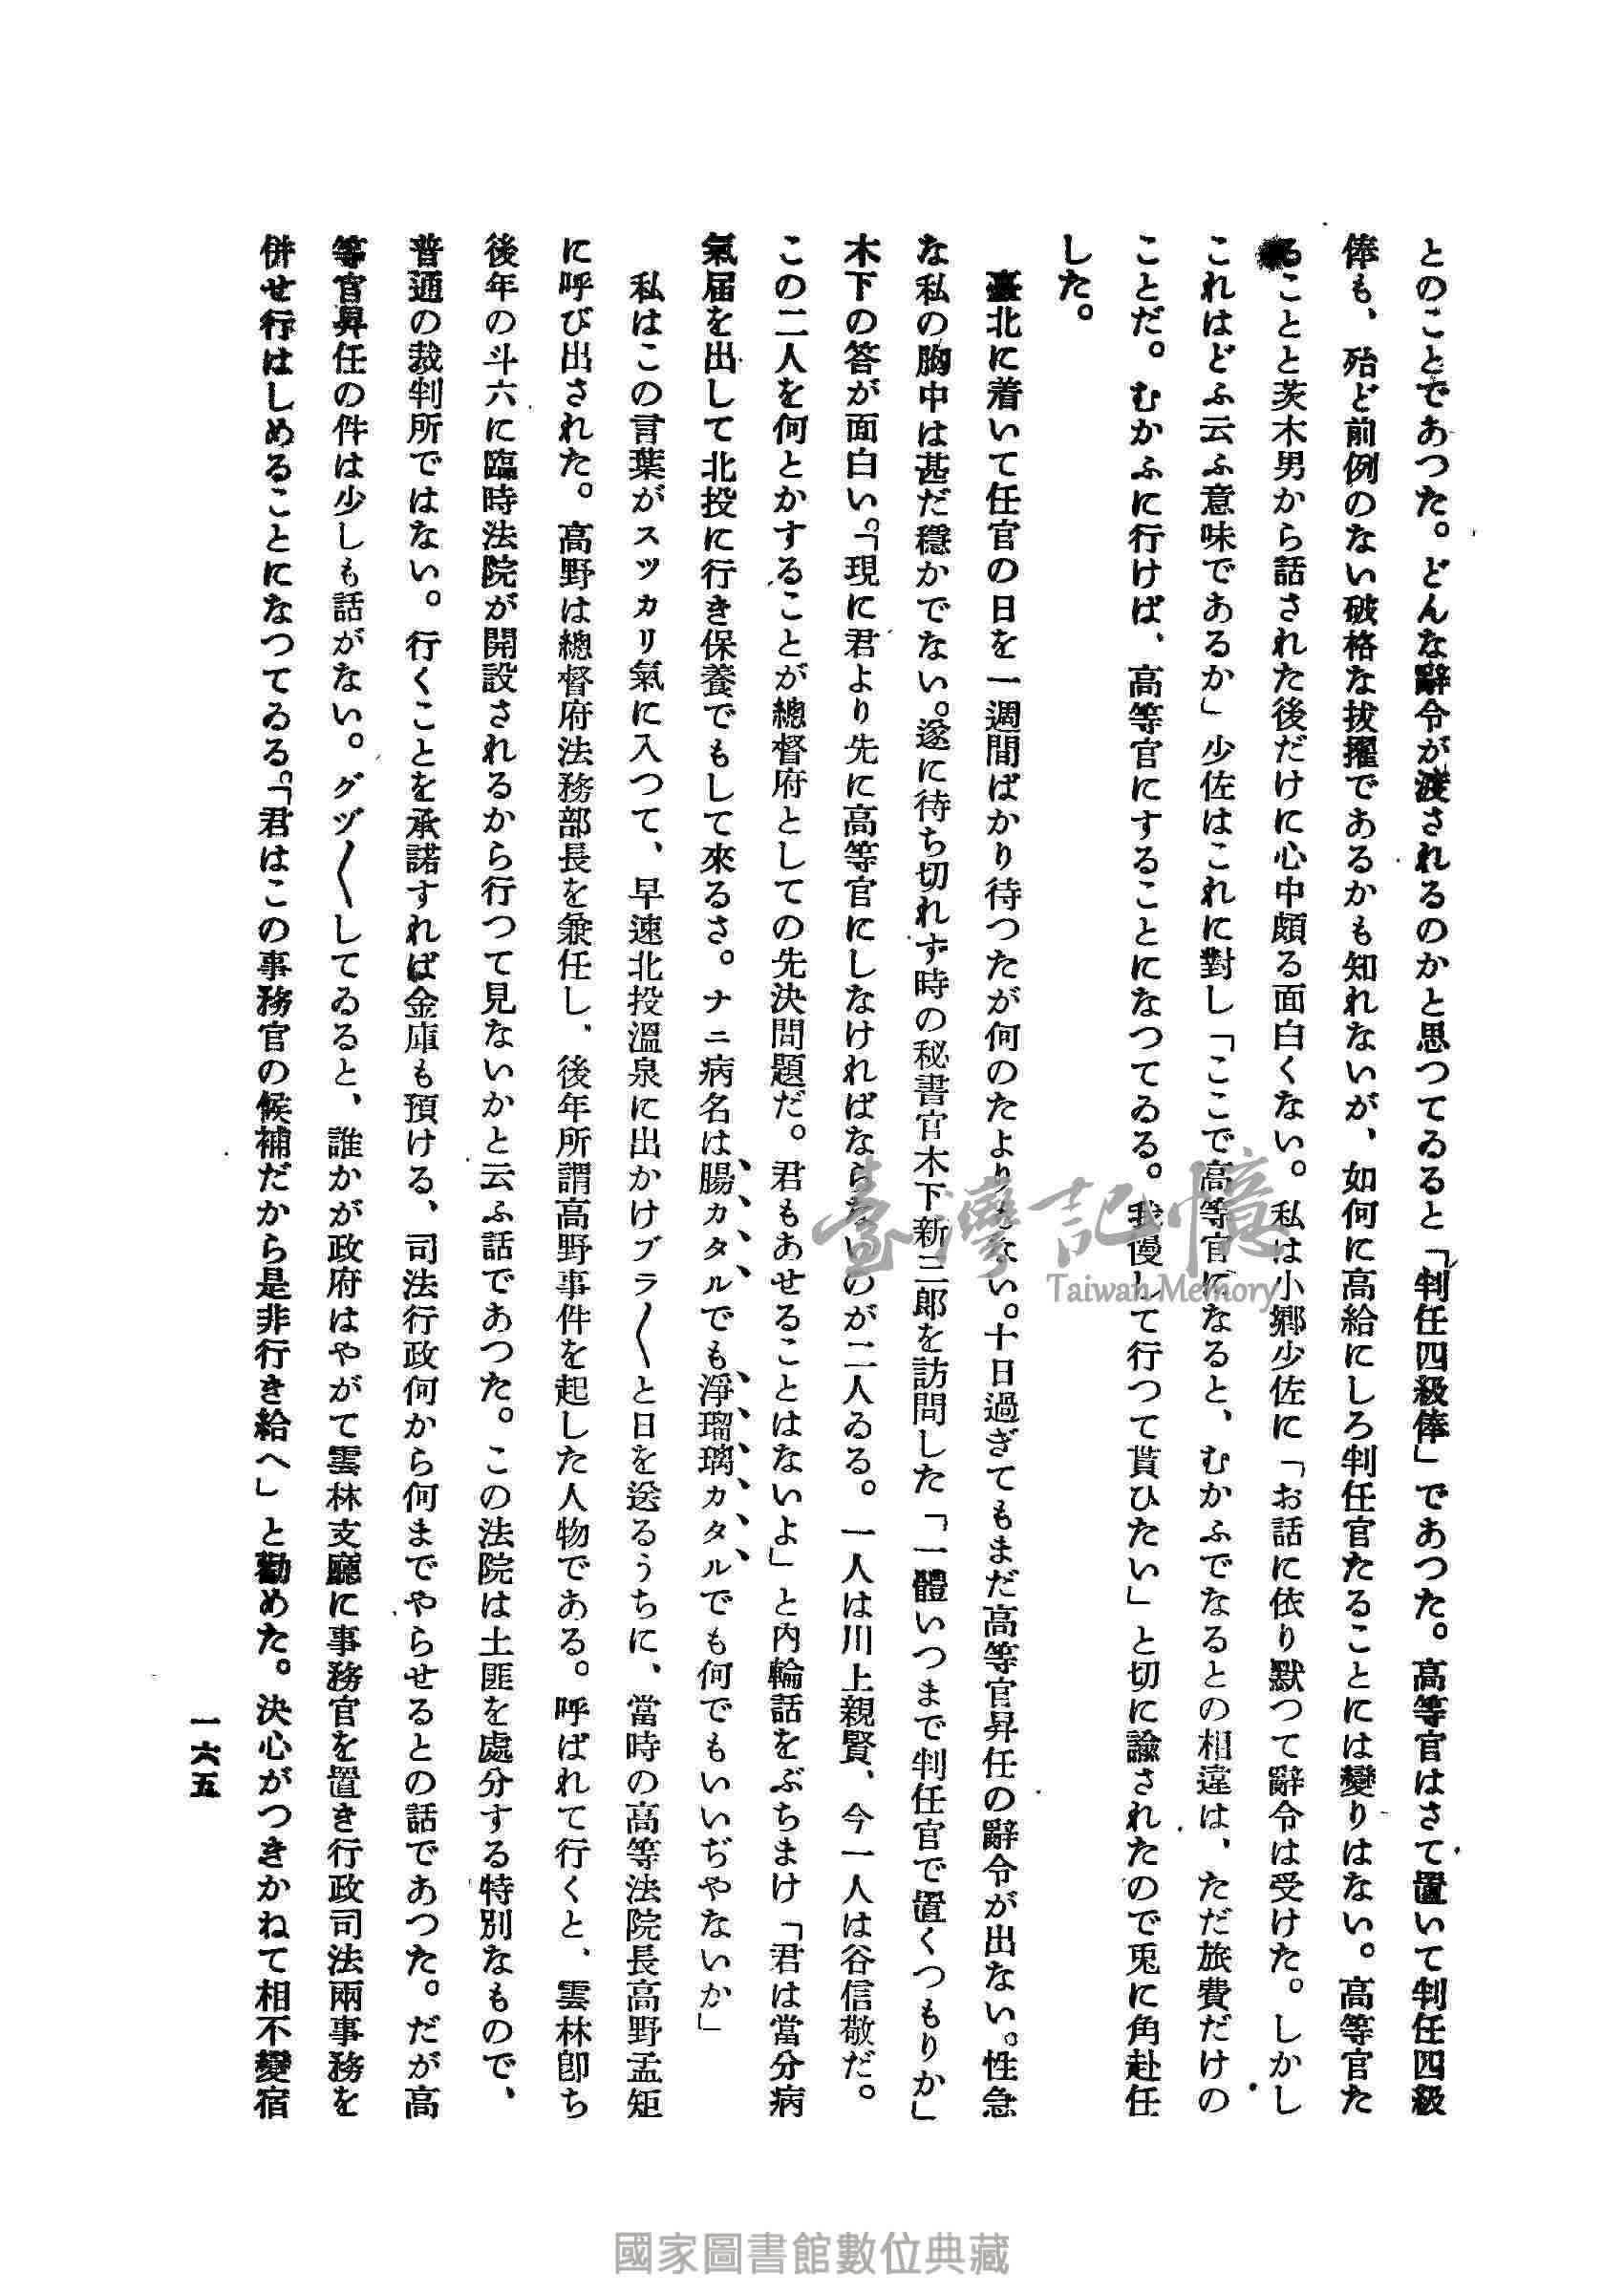 とのことであつた。どんな辭令が渡されるのかと思つてゐると「判任四級俸」であつた。高等官はさて置いて判任四級
俸も、殆ど前例のない破格な拔擢であるかも知れないが、如何に高給にしろ判任官たることには變りはない。高等官た
ることと茨木男から話された後だけに心中頗る面白くない。私は小鄕少佐に「お話に依り默つて辭令は受けた。しかし
これはどふ云ふ意味であるか」少佐はこれに對し「ここで高等官になると、むかふでなるとの相違は、ただ旅費だけの
ことだ。むかふに行けば、高等官にすることになつてゐる。我慢して行つて貰ひたい」と切に諭されたので兎に角赴任
した。
臺北に着いて任官の日を一週間ばかり待つたが何のたよりもない。十日過ぎてもまだ高等官昇任の辭令が出ない。性急
な私の胸中は甚だ穩かでない。遂に待ち切れず時の秘書官木下新三郞を訪問した「一體いつまで判任官で置くつもりか」
木下の答が面白い。「現に君より先に高等官にしなければならないのが二人ゐる。一人は川上親賢、今一人は谷信敬だ。
この二人を何とかすることが總督府としての先決問題だ。君もあせることはないよ」と內輪話をぶちまけ「君は當分病
氣届を出して北投に行き保養でもして來るさ。ナニ病名は腸カタルでも淨瑠璃カタルでも何でもいいぢやないか」
私はこの言葉がスツカリ氣に入つて、早速北投溫泉に出かけブラ〱と日を送るうちに、當時の高等法院長高野孟矩
に呼び出された。高野は總督府法務部長を兼任し、後年所謂高野事件を起した人物である。呼ばれて行くと、雲林卽ち
後年の斗六に臨時法院が開設されるから行つて見ないかと云ふ話であつた。この法院は土匪を處分する特別なもので、
普通の裁判所ではない。行くことを承諾すれば金庫も預ける、司法行政何から何までやらせるとの話であつた。だが高
等官昇任の件は少しも話がない。グヅ〱してゐると、誰かが政府はやがて雲林支廳に事務官を置き行政司法兩事務を
併せ行はしめることになつてゐる。「君はこの事務官の候補だから是非行き給へ」と勸めた。決心がつきかねて相不變宿
一六五
臺灣記憶
Taiwan Memory
國家圖書館數位典藏